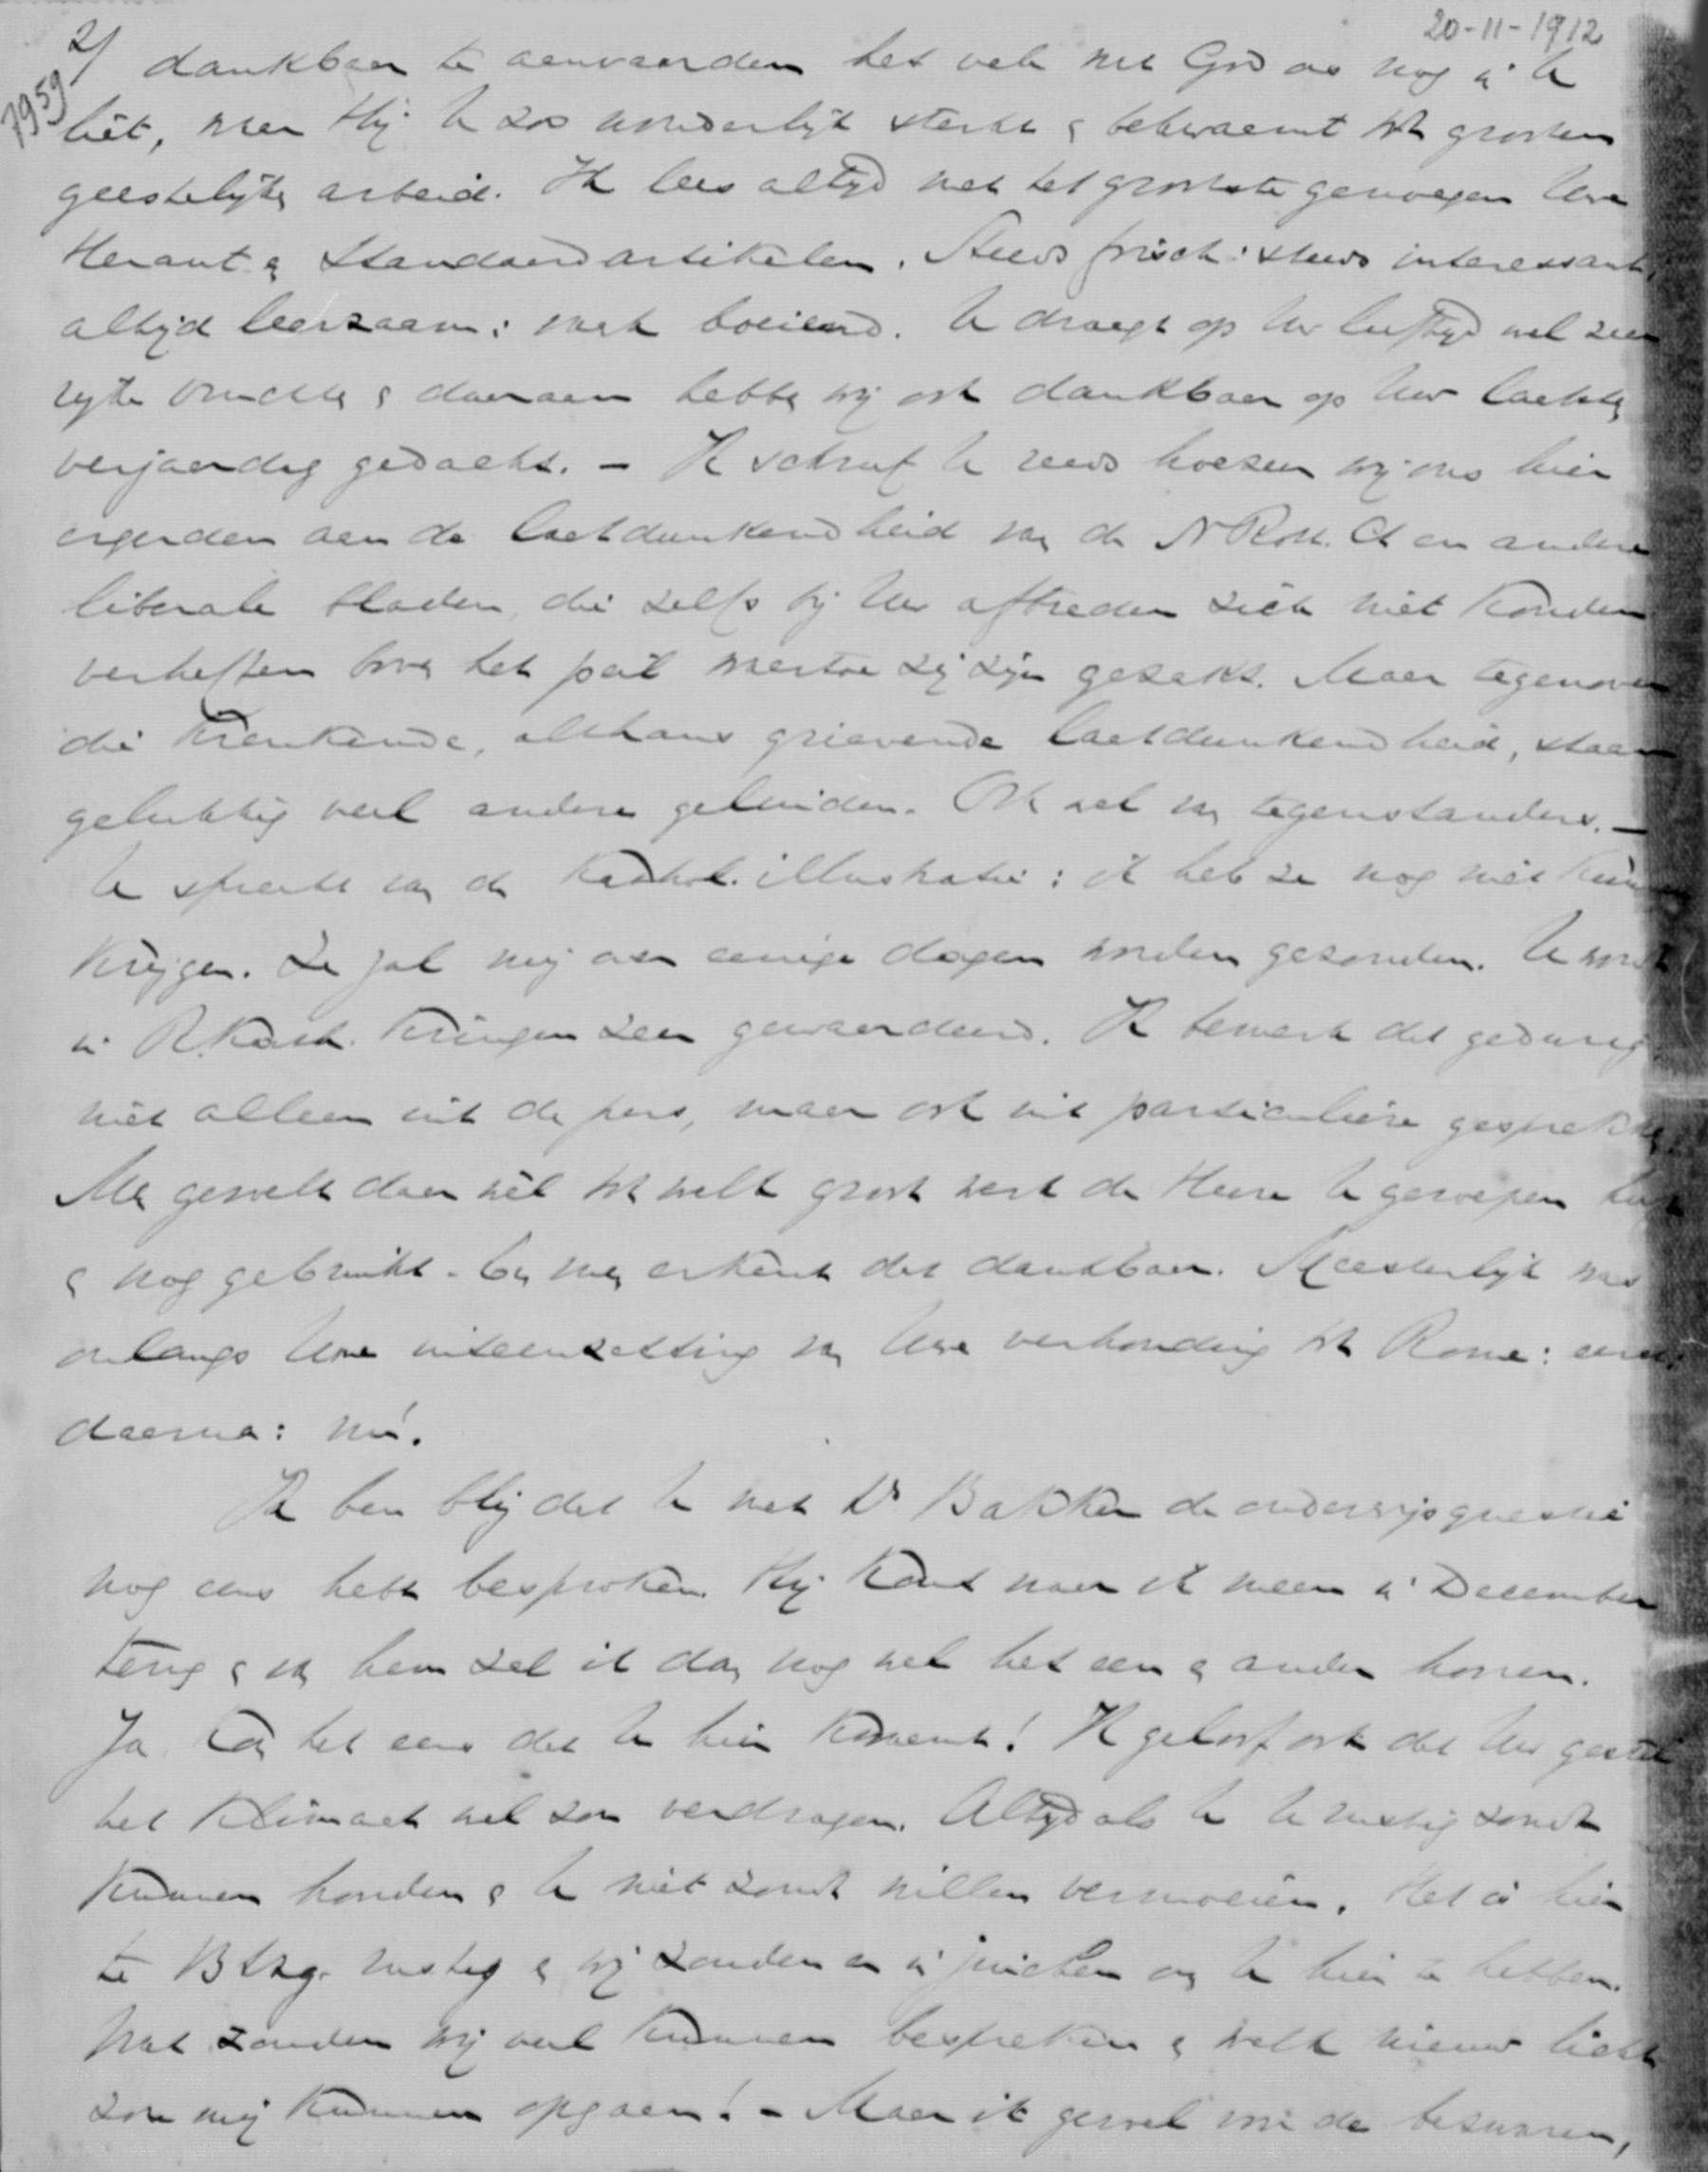 20-11-1912
7959
2/ dankbaar te aanvaarden het vele wat God ons nog in U
liet, waar Hij U zoo wonderlijk sterkt & bekwaamt tot grooten
geestelijke arbeid. Ik lees altijd met het grootste genoegen Uwe
Heraut & Standaardartikelen. Steeds frisch: steeds interessant,
altijd leerzaam: vaak boeiend. U draagt op Uw leeftijd wel zeer
rijke vruchten & daaraan hebben wij ook dankbaar op Uw laatsten
verjaardag gedacht. – Ik schreef U reeds hoezeer wij ons hier
ergerden aan de laatdunkendheid van de N Rott. Ct en andere
liberale bladen, die zelfs bij Uw aftreden zich niet konden
verheffen boven het peil waartoe zij zijn gezakt. Maar tegenover
die krenkende, althans grievende laatdunkendheid, staan
gelukkig veel andere geluiden. Ook wel van tegenstanders. –
U spreekt van de Kathol. illustratie: ik heb ze nog niet kunnen
krijgen. Ze zal mij over eenige dagen worden gezonden. U wordt
in R. Kath. kringen zeer gewaardeerd. Ik bemerk dat gedurig,
niet alleen uit de pers, maar ook uit particuliere gesprekken.
Men gevoelt daar wèl tot welk groot werk de Heere U geroepen heeft
& nog gebruikt. En men erkent dat dankbaar. Meesterlijk was
onlangs Uwe uiteenzetting van Uwe verhouding tot Rome: eerst:
daarna: nú.
Ik ben blij dat U met Dr Bakker de onderwijsquestie
nog eens hebt besproken. Hij komt naar ik meen in December
terug & van hem zal ik dan nog wel het een & ander hooren.
Ja kon het eens dat U hier kwaamt! Ik geloof ook dat Uw gestel
het klimaat wel zou verdragen. Altijd als U U rustig zoudt
kunnen houden & U niet zoudt willen vermoeien. Het is hier
te Btzg. rustig & wij zouden er in juichen om U hier te hebben.
Wat zouden wij veel kunnen bespreken & welk nieuw licht
zou mij kunnen opgaan! – Maar ik gevoel mede de bezwaren,